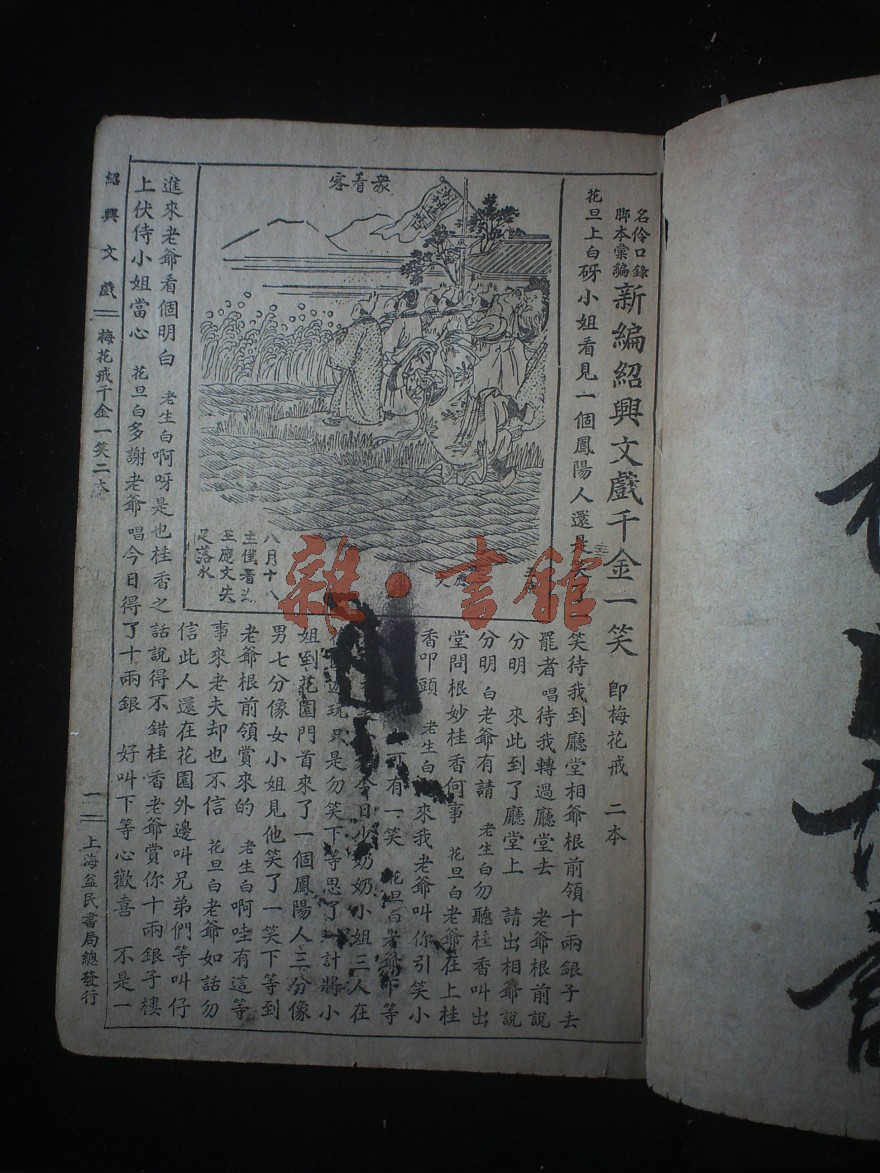 名伶口錄
脚本彙編
新編紹興文戲千金一笑 即梅花戒 二本
花旦上白 砑小姐看見一個鳳陽人還是笑了一
眾看客
八月十八
主僕看
王應文失
足落水
笑待我到廳堂相爺根前領十兩銀子去
罷者 唱待我轉過廳堂去 老爺根前說
分明 來此到了廳堂上 請出相爺說
分明 白老爺有請 老生白勿聽桂香叫出
堂問根妙桂香何事 花旦白老爺在上桂
香叩頭 老生白 來我老爺叫你引笑小
可有一笑 花旦白老爺下等
今日少奶奶小姐三人在
玩只是勿笑下等思了一計將小
姐到花園門首來了一個鳳陽人三分像
男七分像女小姐見他笑了一笑下等到
老爺根前領賞來的 老生白啊哇有這等
事來老夫却也不信 花旦白老爺如話勿
信此人還在花園外邊叫兄弟們等叫仔
進來老爺看個明白 老生白啊呀是也桂香之話說得不錯桂香老爺賞你十兩銀子樓
上伏侍小姐當心 花旦白多謝老爺 唱今日得了十兩銀 好叫下等心歡喜 不是一
紹興文戲 梅花戒千金一笑二本 一 上海益民書局總發行
雜·書館